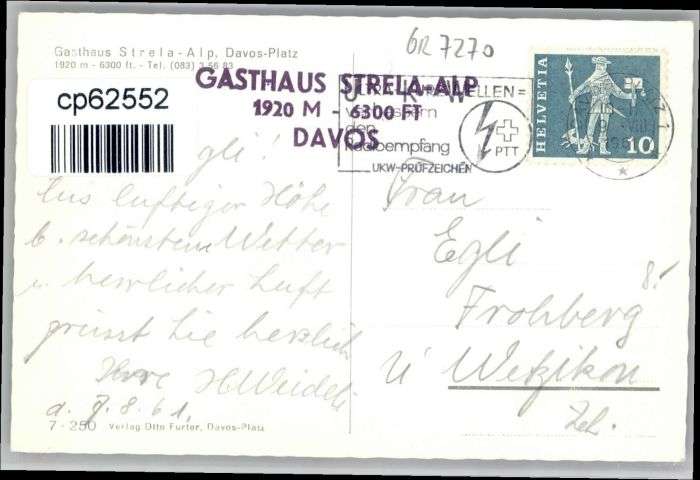 GR 7270
Gasthaus Strela-Alp, Davos-Platz
1920 m - 6300 ft. - Tel. (083) 3 56 83
GASTHAUS STRELA-ALP
1920 M - 6300 FT
DAVOS
cp62552
WELLEN=
den
Radioempfang
UKW-PRÜFZEICHEN
PTT
HELVETIA
10
Aus luftiger Höhe
b. schönstem Wetter
u. herrlicher Luft
grüsst Sie herzlich
Ihre H. Weideli
d. 8.8.61.
Frau
Egli
Frohberg 8.
Ü Wetzikon
Zch.
7-250 Verlag Otto Furter, Davos-Platz